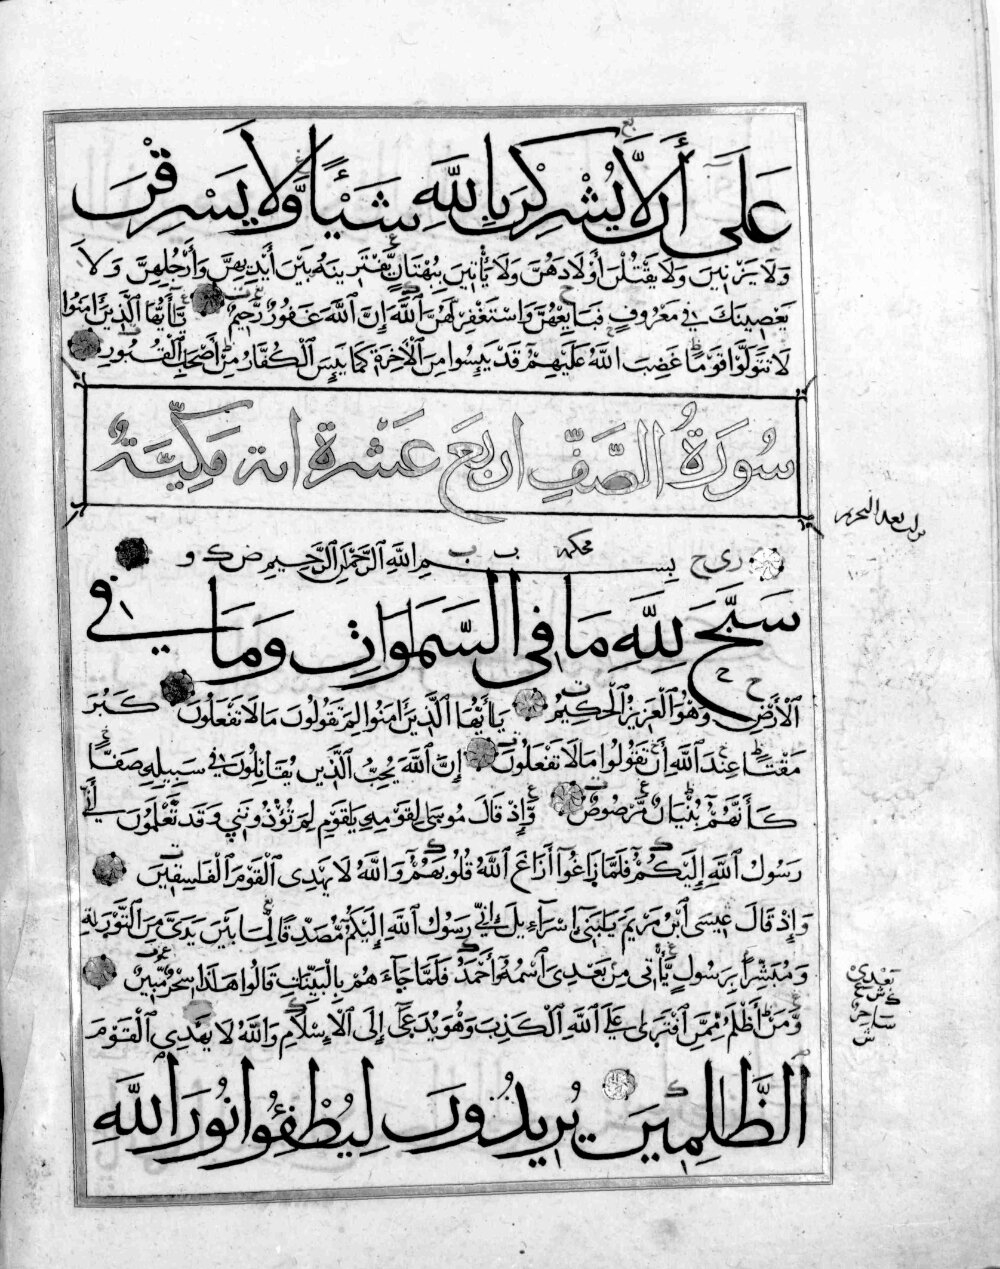 عَلَىٰ أَن لَّا يُشْرِكْنَ بِاللَّهِ شَيْئًا وَلَا يَسْرِقْنَ
وَلَا يَزْنِينَ وَلَا يَقْتُلْنَ أَوْلَادَهُنَّ وَلَا يَأْتِينَ بِبُهْتَانٍ يَفْتَرِينَهُ بَيْنَ أَيْدِيهِنَّ وَأَرْجُلِهِنَّ وَلَا
يَعْصِينَكَ فِي مَعْرُوفٍ فَبَايِعْهُنَّ وَاسْتَغْفِرْ لَهُنَّ اللَّهَ إِنَّ اللَّهَ غَفُورٌ رَّحِيمٌ يَا أَيُّهَا الَّذِينَ آمَنُوا
لَا تَتَوَلَّوْا قَوْمًا غَضِبَ اللَّهُ عَلَيْهِمْ قَدْ يَئِسُوا مِنَ الْآخِرَةِ كَمَا يَئِسَ الْكُفَّارُ مِنْ أَصْحَابِ الْقُبُورِ
سُورَةُ الصَّفِّ اربَعَ عَشْرَةَ اية مَكِّيَّةٌ
نزلت بعد التحريم
ري ح بِسْمِ اللَّهِ الرَّحْمَٰنِ الرَّحِيمِ ض ك و
محكمة
سَبَّحَ لِلَّهِ مَا فِي السَّمَوَاتِ وَمَا فِي
الْأَرْضِ وَهُوَ الْعَزِيزُ الْحَكِيمُ يَا أَيُّهَا الَّذِينَ آمَنُوا لِمَ تَقُولُونَ مَا لَا تَفْعَلُونَ كَبُرَ
مَقْتًا عِندَ اللَّهِ أَن تَقُولُوا مَا لَا تَفْعَلُونَ إِنَّ اللَّهَ يُحِبُّ الَّذِينَ يُقَاتِلُونَ فِي سَبِيلِهِ صَفًّا
كَأَنَّهُمْ بُنْيَانٌ مَّرْصُوصٌ وَإِذْ قَالَ مُوسَىٰ لِقَوْمِهِ يَا قَوْمِ لِمَ تُؤْذُونَنِي وَقَد تَّعْلَمُونَ أَنِّي
رَسُولُ اللَّهِ إِلَيْكُمْ فَلَمَّا زَاغُوا أَزَاغَ اللَّهُ قُلُوبَهُمْ وَاللَّهُ لَا يَهْدِي الْقَوْمَ الْفَاسِقِينَ
وَإِذْ قَالَ عِيسَى ابْنُ مَرْيَمَ يَا بَنِي إِسْرَاءِيلَ إِنِّي رَسُولُ اللَّهِ إِلَيْكُم مُّصَدِّقًا لِّمَا بَيْنَ يَدَيَّ مِنَ التَّوْرَاةِ
وَمُبَشِّرًا بِرَسُولٍ يَأْتِي مِن بَعْدِي اسْمُهُ أَحْمَدُ فَلَمَّا جَاءَهُم بِالْبَيِّنَاتِ قَالُوا هَٰذَا سِحْرٌ مُّبِينٌ
بعدي
ساحر
وَمَنْ أَظْلَمُ مِمَّنِ افْتَرَىٰ عَلَى اللَّهِ الْكَذِبَ وَهُوَ يُدْعَىٰ إِلَى الْإِسْلَامِ وَاللَّهُ لَا يَهْدِي الْقَوْمَ
الظَّالِمِينَ يُرِيدُونَ لِيُطْفِئُوا نُورَ اللَّهِ